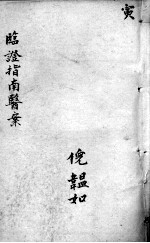 寅
臨證指南醫案
韞如